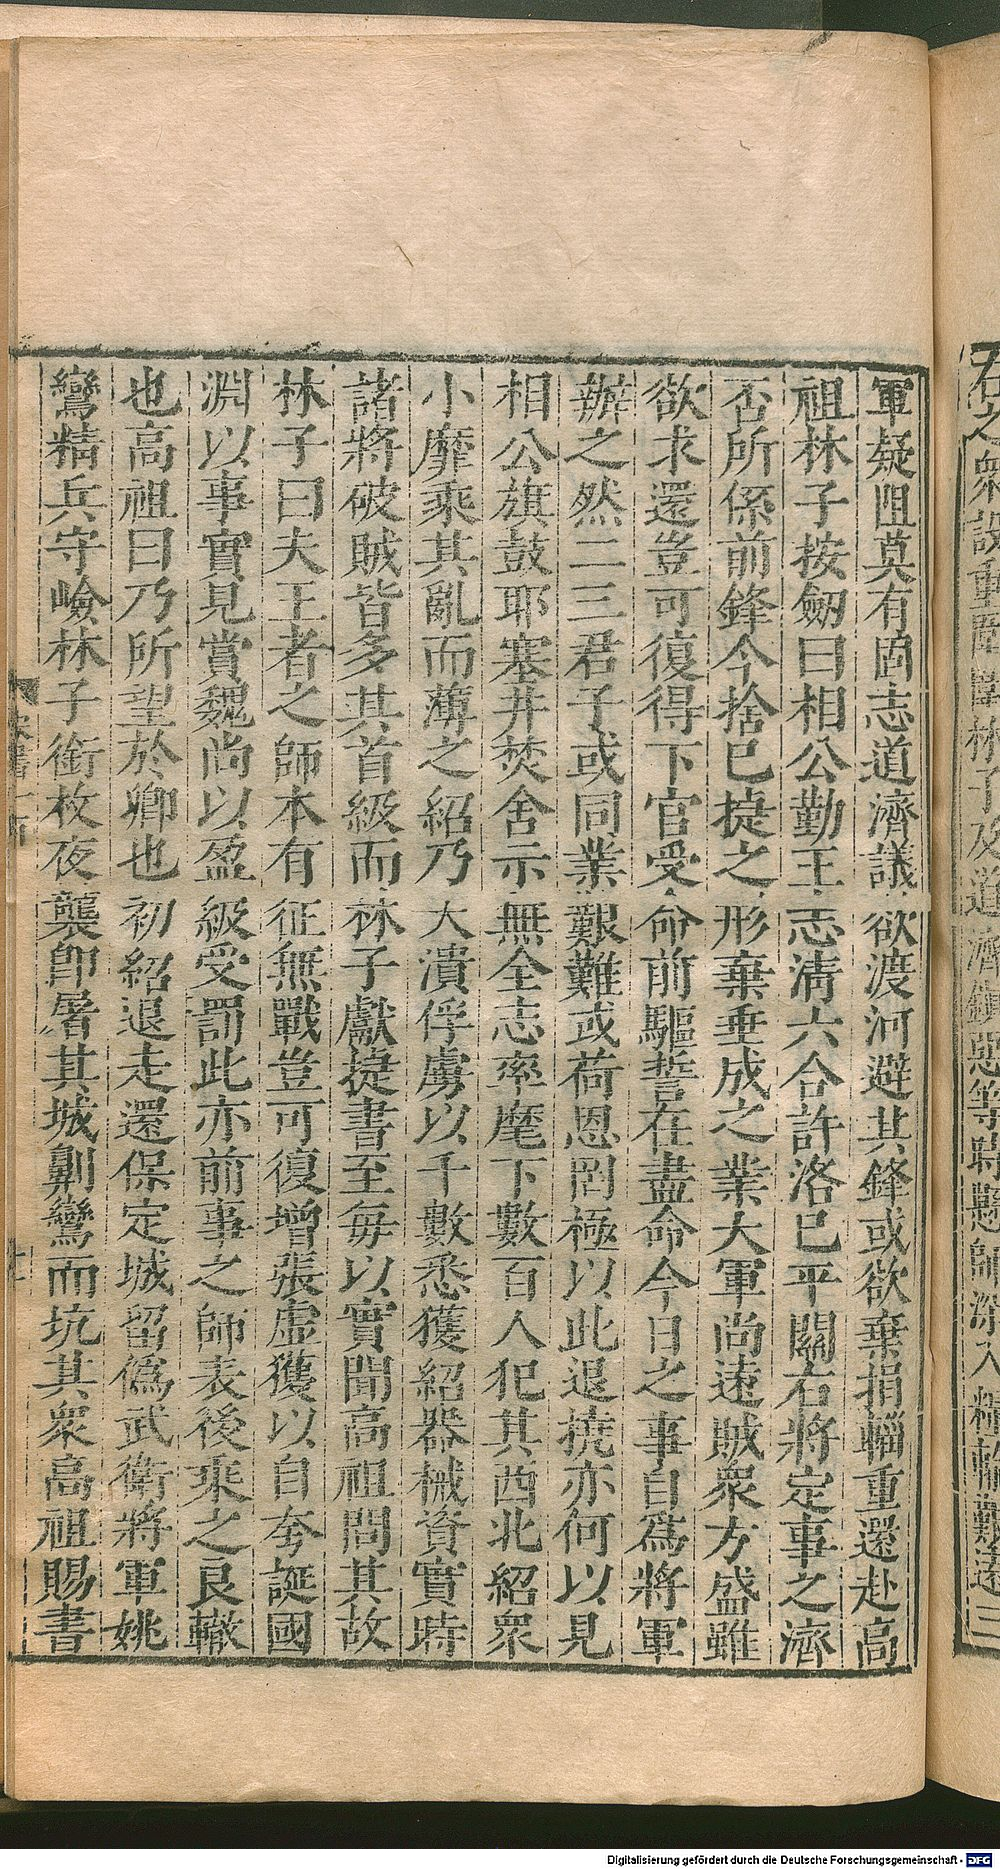 軍疑阻莫有固志道濟議欲渡河避其鋒或欲棄捐輜重還赴高
祖林子按劒曰相公勤王志清六合許洛已平關右將定事之濟
否所係前鋒今捨已捷之形棄垂成之業大軍尚遠賊衆方盛雖
欲求還豈可復得下官受命前驅誓在盡命今日之事自爲將軍
辦之然二三君子或同業艱難或荷恩罔極以此退撓亦何以見
相公旗鼓耶塞井焚舍示無全志率麾下數百人犯其酉北紹衆
小靡乘其亂而薄之紹乃大潰俘虜以千數悉獲紹器械資實時
諸將破賊皆多其首級而林子獻捷書至毎以實聞高祖問其故
林子曰夫王者之師本有征無戰豈可復增張虛獲以自夸誕國
淵以事實見賞魏尚以盈級受罰此亦前事之師表後乘之良轍
也高祖曰乃所望於卿也初紹退走還保定城留僞武衛將軍姚
鸞精兵守嶮林子銜枚夜襲卽屠其城劓鸞而坑其衆高祖賜書
Digitalisierung gefördert durch die Deutsche Forschungsgemeinschaft - DFG